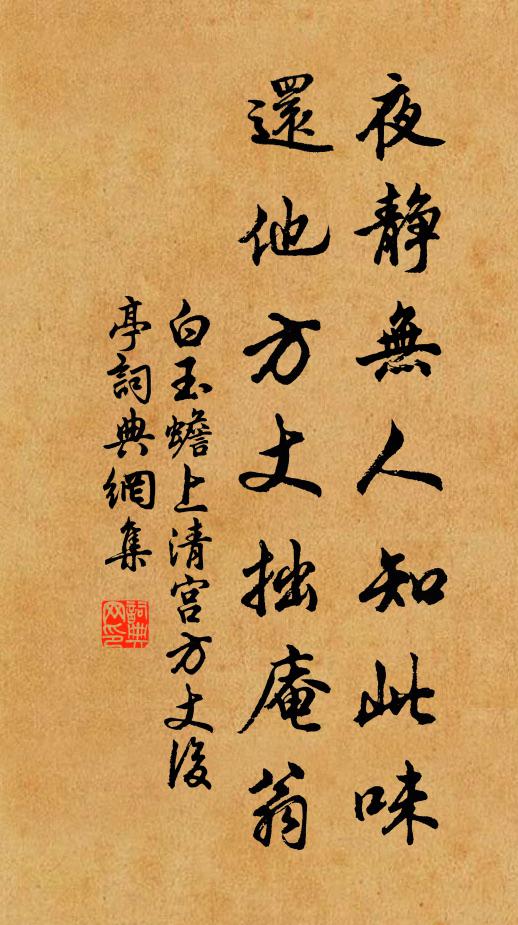 夜静無人知此味
還他方丈拙庵翁
白玉蟾上清宫方丈後
亭詞典網集
詞典网印